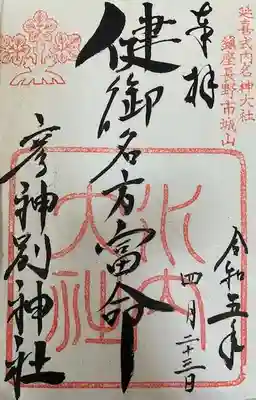 延喜式内名神大社
鎮座長野市城山
奉拝
健御名方富命
彦神別神社
水内
大社
令和五年
四月二十三日